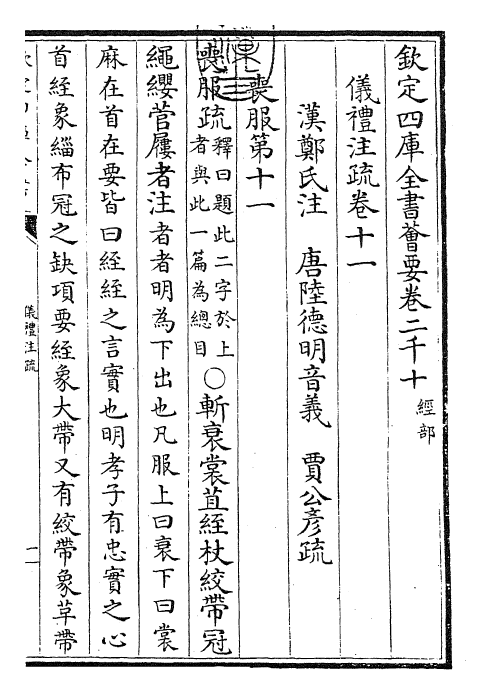 欽定四庫全書薈要卷二千十 經部
儀禮注疏卷十一
漢鄭氏注 唐陸德明音義 賈公彥疏
喪服第十一
喪服疏釋曰題此二字於上者與此一篇為總目○斬衰裳苴絰杖絞帶冠
繩纓菅屨者注者者明為下出也凡服上曰衰下曰裳
麻在首在要皆曰絰絰之言實也明孝子有忠實之心
首絰象緇布冠之缺項要絰象大帶又有絞帶象草帶
儀禮注疏
一